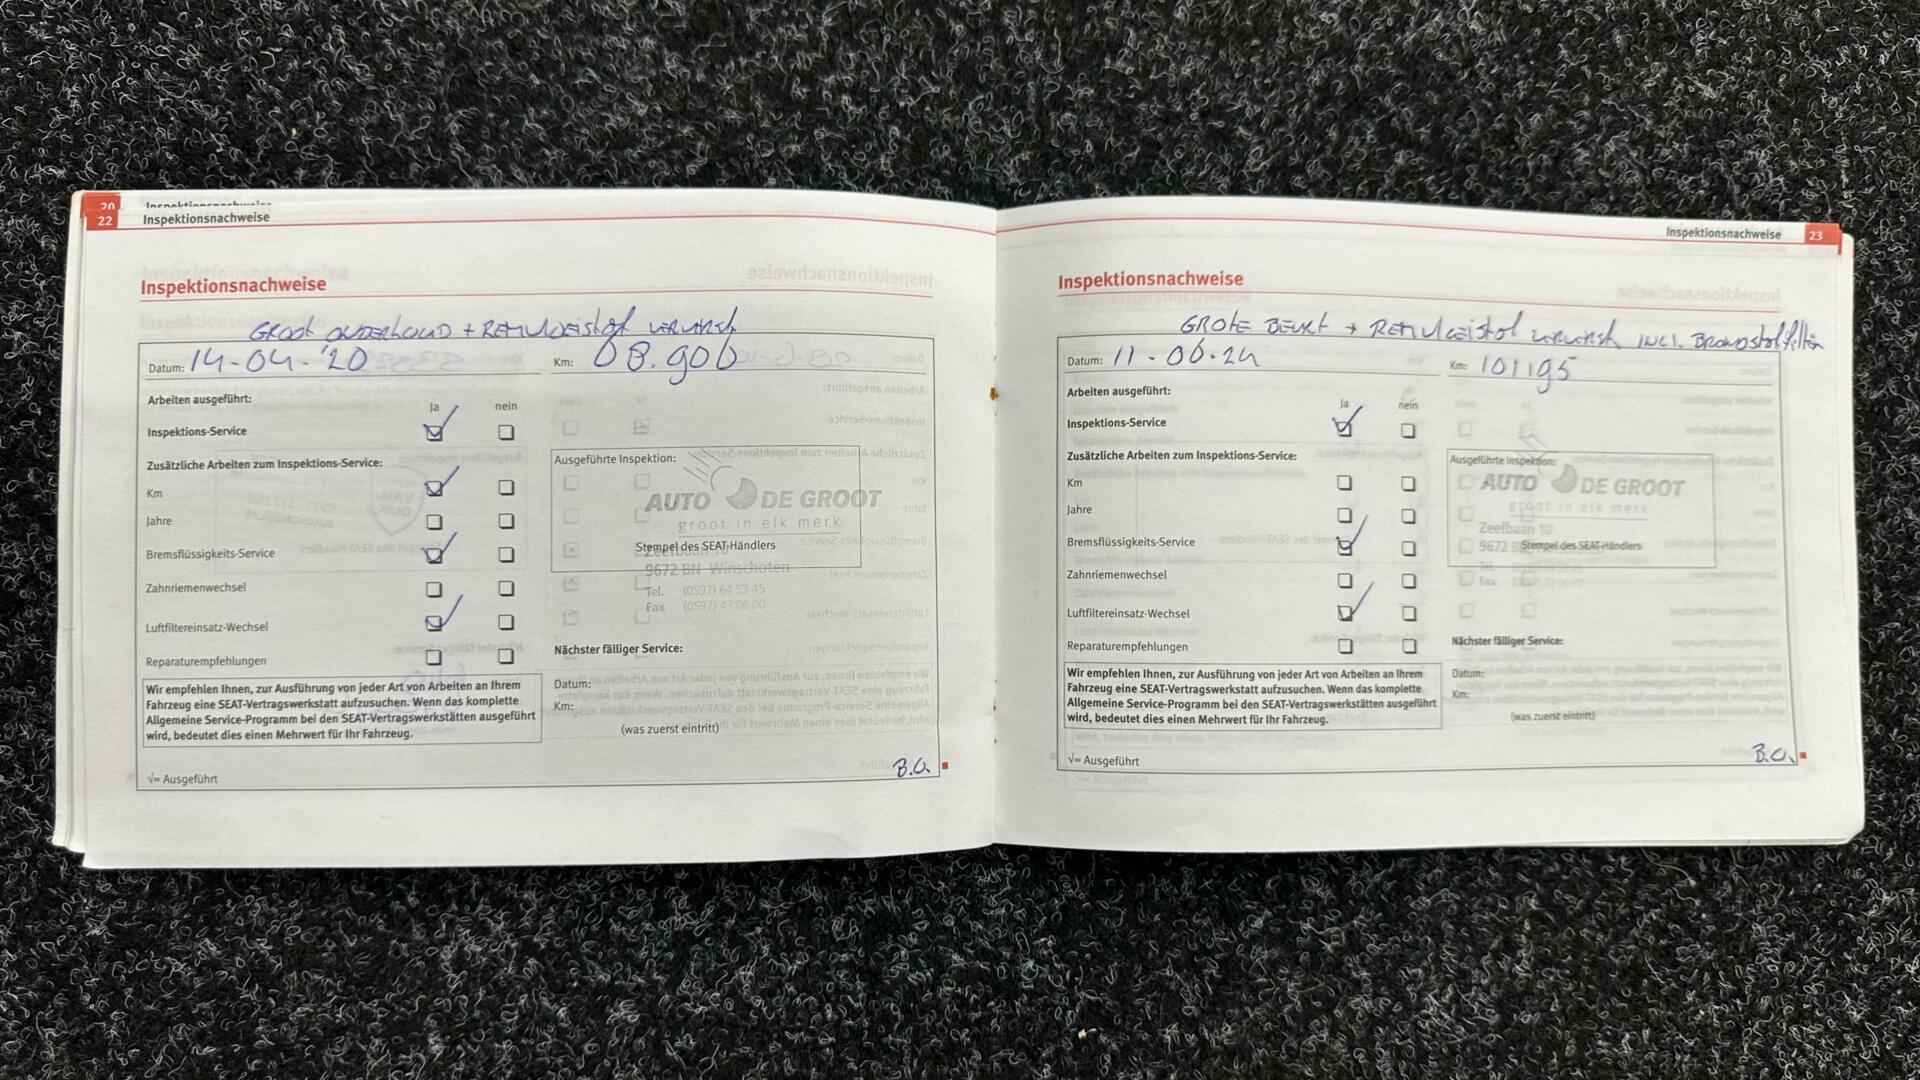 20 Inspektionsnachweise
22 Inspektionsnachweise
Inspektionsnachweise
GROOT ONDERHOUD + REMVLOEISTOF VERVERST
Datum: 14-04-'20 Km: 08.906
Arbeiten ausgeführt:
Ja nein
Inspektions-Service
Zusätzliche Arbeiten zum Inspektions-Service:
Km
Jahre
Bremsflüssigkeits-Service
Zahnriemenwechsel
Luftfiltereinsatz-Wechsel
Reparaturempfehlungen
Wir empfehlen Ihnen, zur Ausführung von jeder Art von Arbeiten an Ihrem
Fahrzeug eine SEAT-Vertragswerkstatt aufzusuchen. Wenn das komplette
Allgemeine Service-Programm bei den SEAT-Vertragswerkstätten ausgeführt
wird, bedeutet dies einen Mehrwert für Ihr Fahrzeug.
√= Ausgeführt
Ausgeführte Inspektion:
AUTO DE GROOT
groot in elk merk
Stempel des SEAT-Händlers
Zeefbaan 10
9672 BN Winschoten
Tel. (0597) 64 53 45
Fax (0597)
Nächster fälliger Service:
Datum:
Km:
(was zuerst eintritt)
B.O.
Inspektionsnachweise 23
Inspektionsnachweise
GROTE BEURT + REMVLOEISTOF VERVERST INCL. BRANDSTOFFILTER
Datum: 11-06-24 Km: 101195
Arbeiten ausgeführt:
Ja nein
Inspektions-Service
Zusätzliche Arbeiten zum Inspektions-Service:
Km
Jahre
Bremsflüssigkeits-Service
Zahnriemenwechsel
Luftfiltereinsatz-Wechsel
Reparaturempfehlungen
Wir empfehlen Ihnen, zur Ausführung von jeder Art von Arbeiten an Ihrem
Fahrzeug eine SEAT-Vertragswerkstatt aufzusuchen. Wenn das komplette
Allgemeine Service-Programm bei den SEAT-Vertragswerkstätten ausgeführt
wird, bedeutet dies einen Mehrwert für Ihr Fahrzeug.
√= Ausgeführt
Ausgeführte Inspektion:
AUTO DE GROOT
groot in elk merk
Zeefbaan 10
9672 Stempel des SEAT-Händlers
Tel.
Fax
Nächster fälliger Service:
Datum:
Km:
(was zuerst eintritt)
B.O.